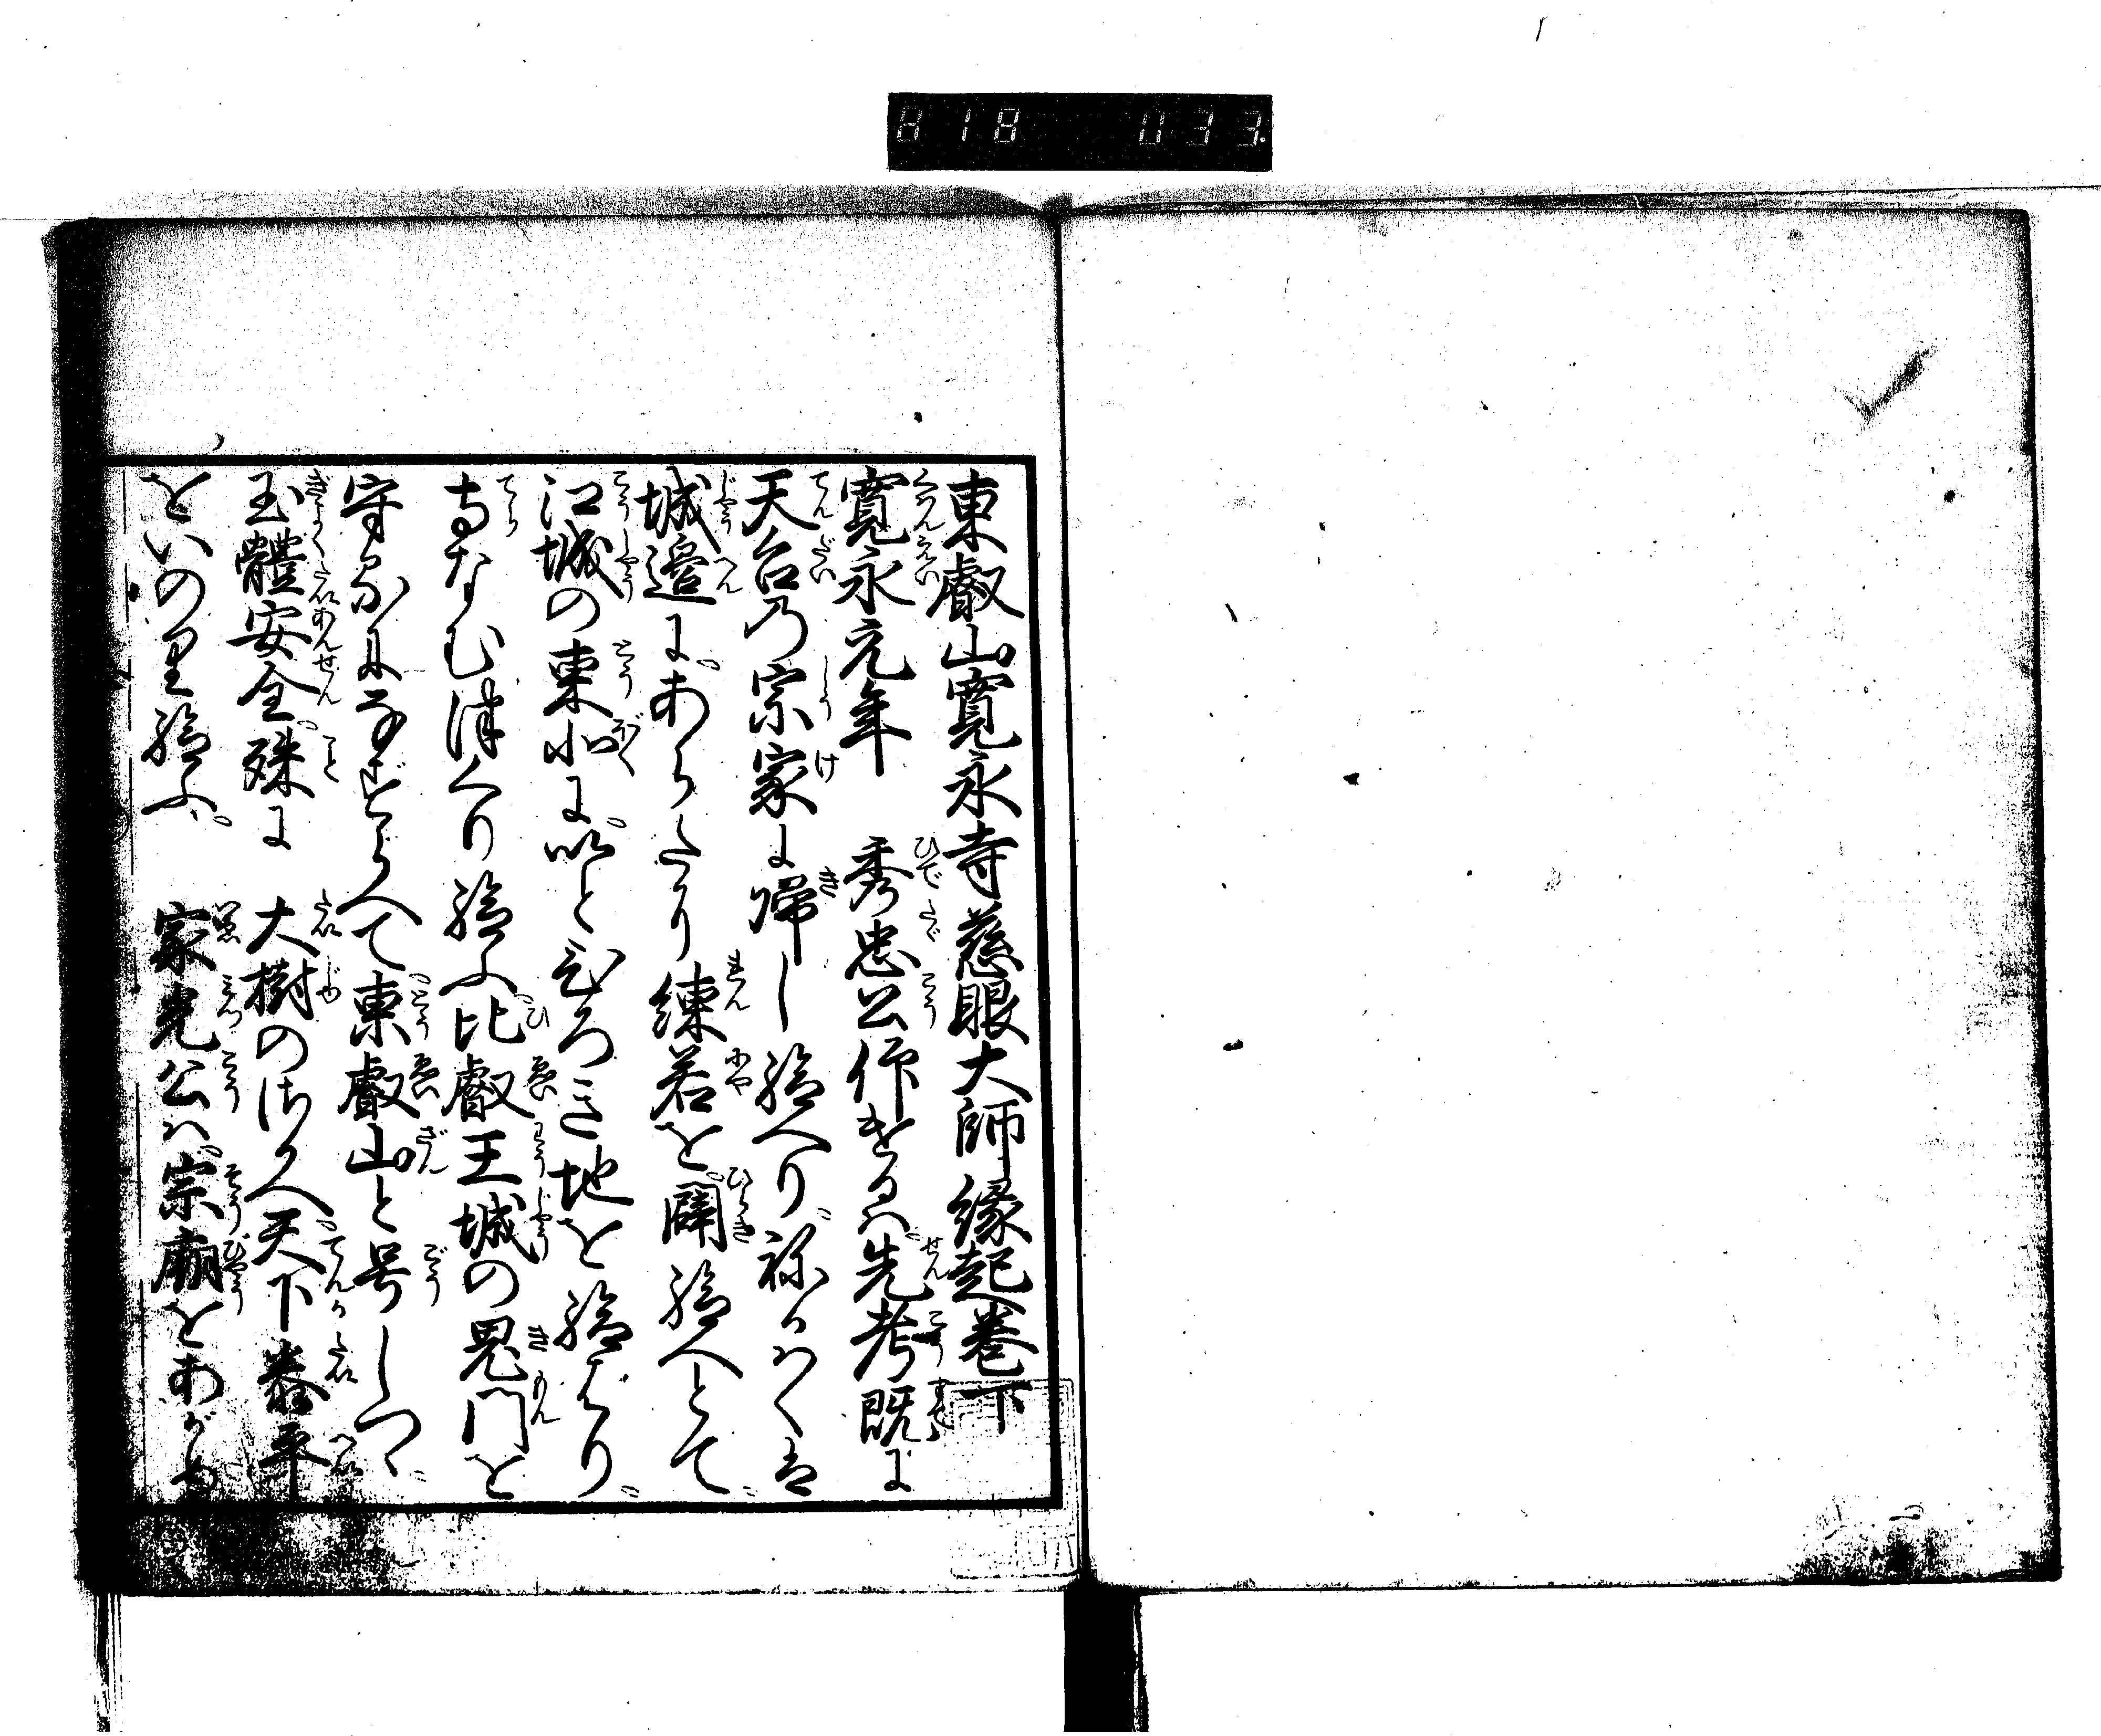 818 033
東叡山寛永寺慈眼大師縁起巻下
寛永元年 秀忠公仰せるハ先考既に
天台乃宗家に帰し給へり祢かハくは
城邉にあらたに練若を闢給へとて
江城の東北にいとひろき地を給はり
寺なむつくり給ふ比叡王城の鬼門を
守るになぞらへて東叡山と号しつゝ
玉體安全殊に 大樹のさかへ天下泰平
をいのり給ふ 家光公ハ宗廟をあがめ